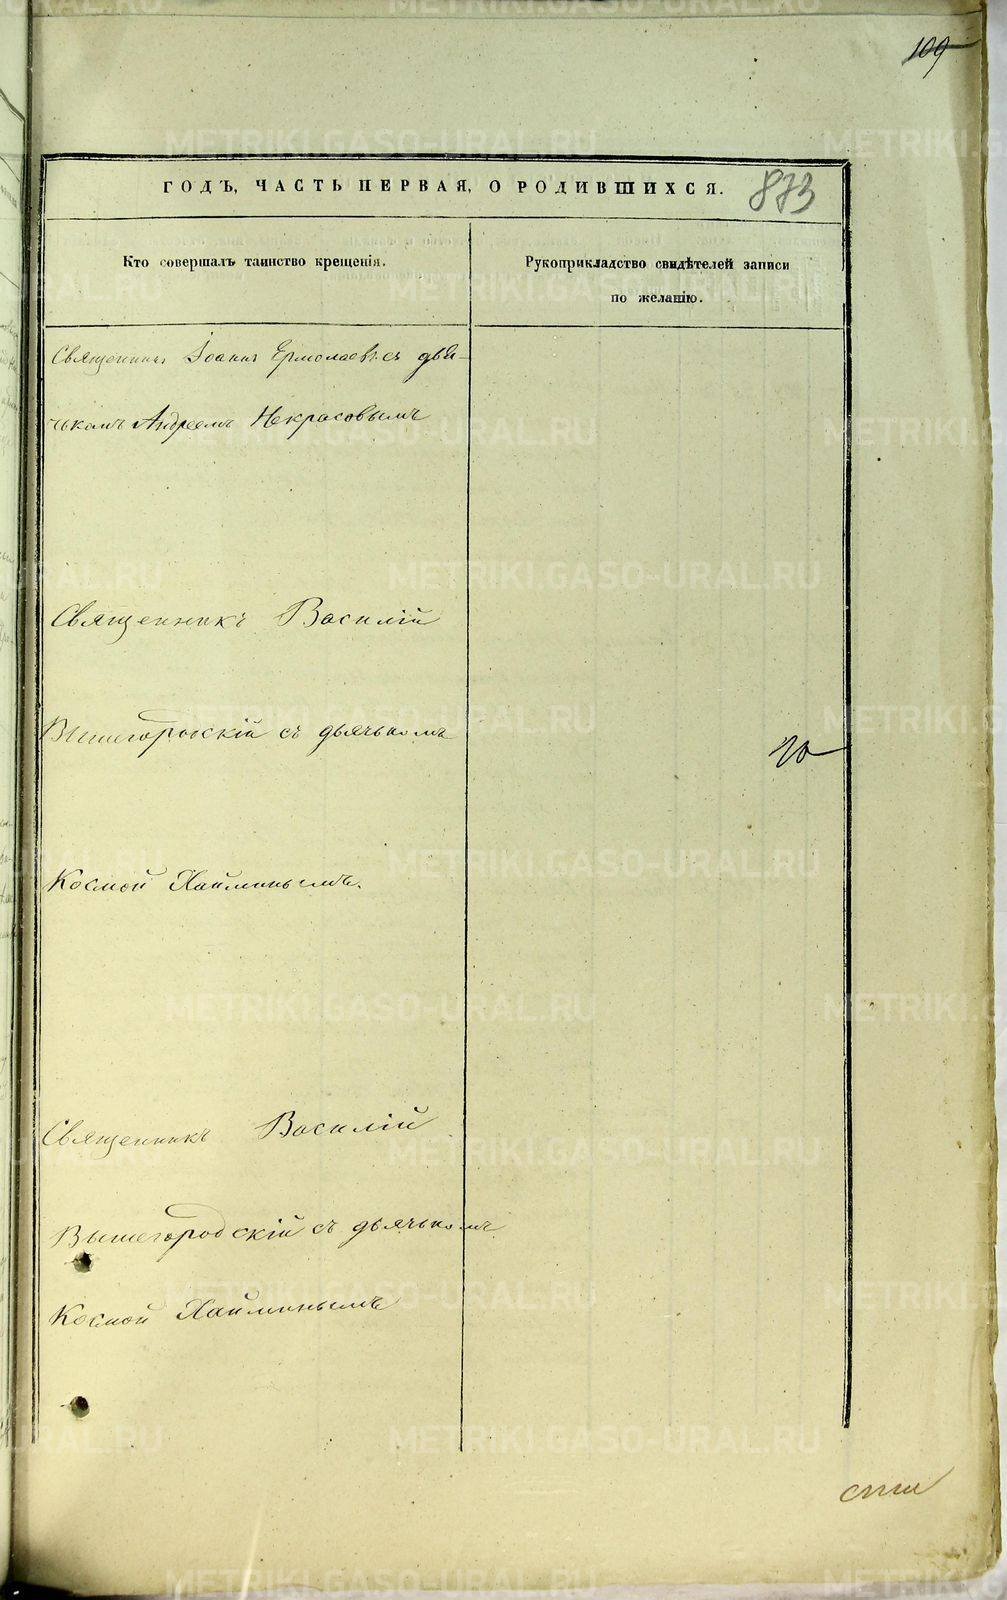 109
ГОДЪ, ЧАСТЬ ПЕРВАЯ, О РОДИВШИХСЯ.
873
Кто совершалъ таинство крещенія.
Рукоприкладство свидѣтелей записи
по желанію.
Священникъ Іоаннъ Ермолаевъ съ дья-
чькомъ Андреемъ Некрасовымъ
Священникъ Василій
Вышегородскій съ дьячькомъ
Космой Хайминымъ.
Священникъ Василій
Вышегородскій съ дьячькомъ
Космой Хайминымъ
METRIKI.GASO-URAL.RU